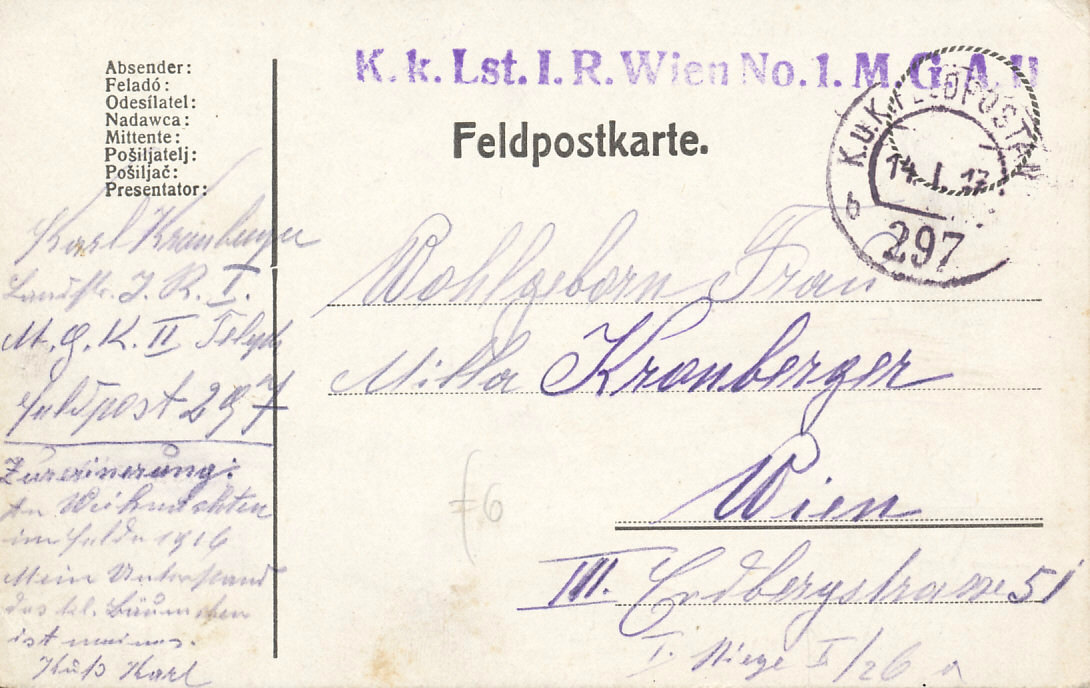 K. k. Lst. I. R. Wien No. 1. M. G. A. II
Absender:
Feladó:
Odesílatel:
Nadawca:
Mittente:
Pošiljatelj:
Pošiljač:
Presentator:
Feldpostkarte.
K.u.K. FELDPOSTAMT
14. I. 17
b
297
Karl Kranberger
Landstr. I. R. I.
M. G. K. II Teleph
Feldpost 297
Zurerinerung:
An Weihnachten
im Felde 1916
Mein Unterstand
das kl. Bäumchen
ist meines.
Kuß Karl
Wohlgeborn Frau
Milla Kranberger
Wien
III. Erdbergstrasse 51
I. Stiege I/26 a
6